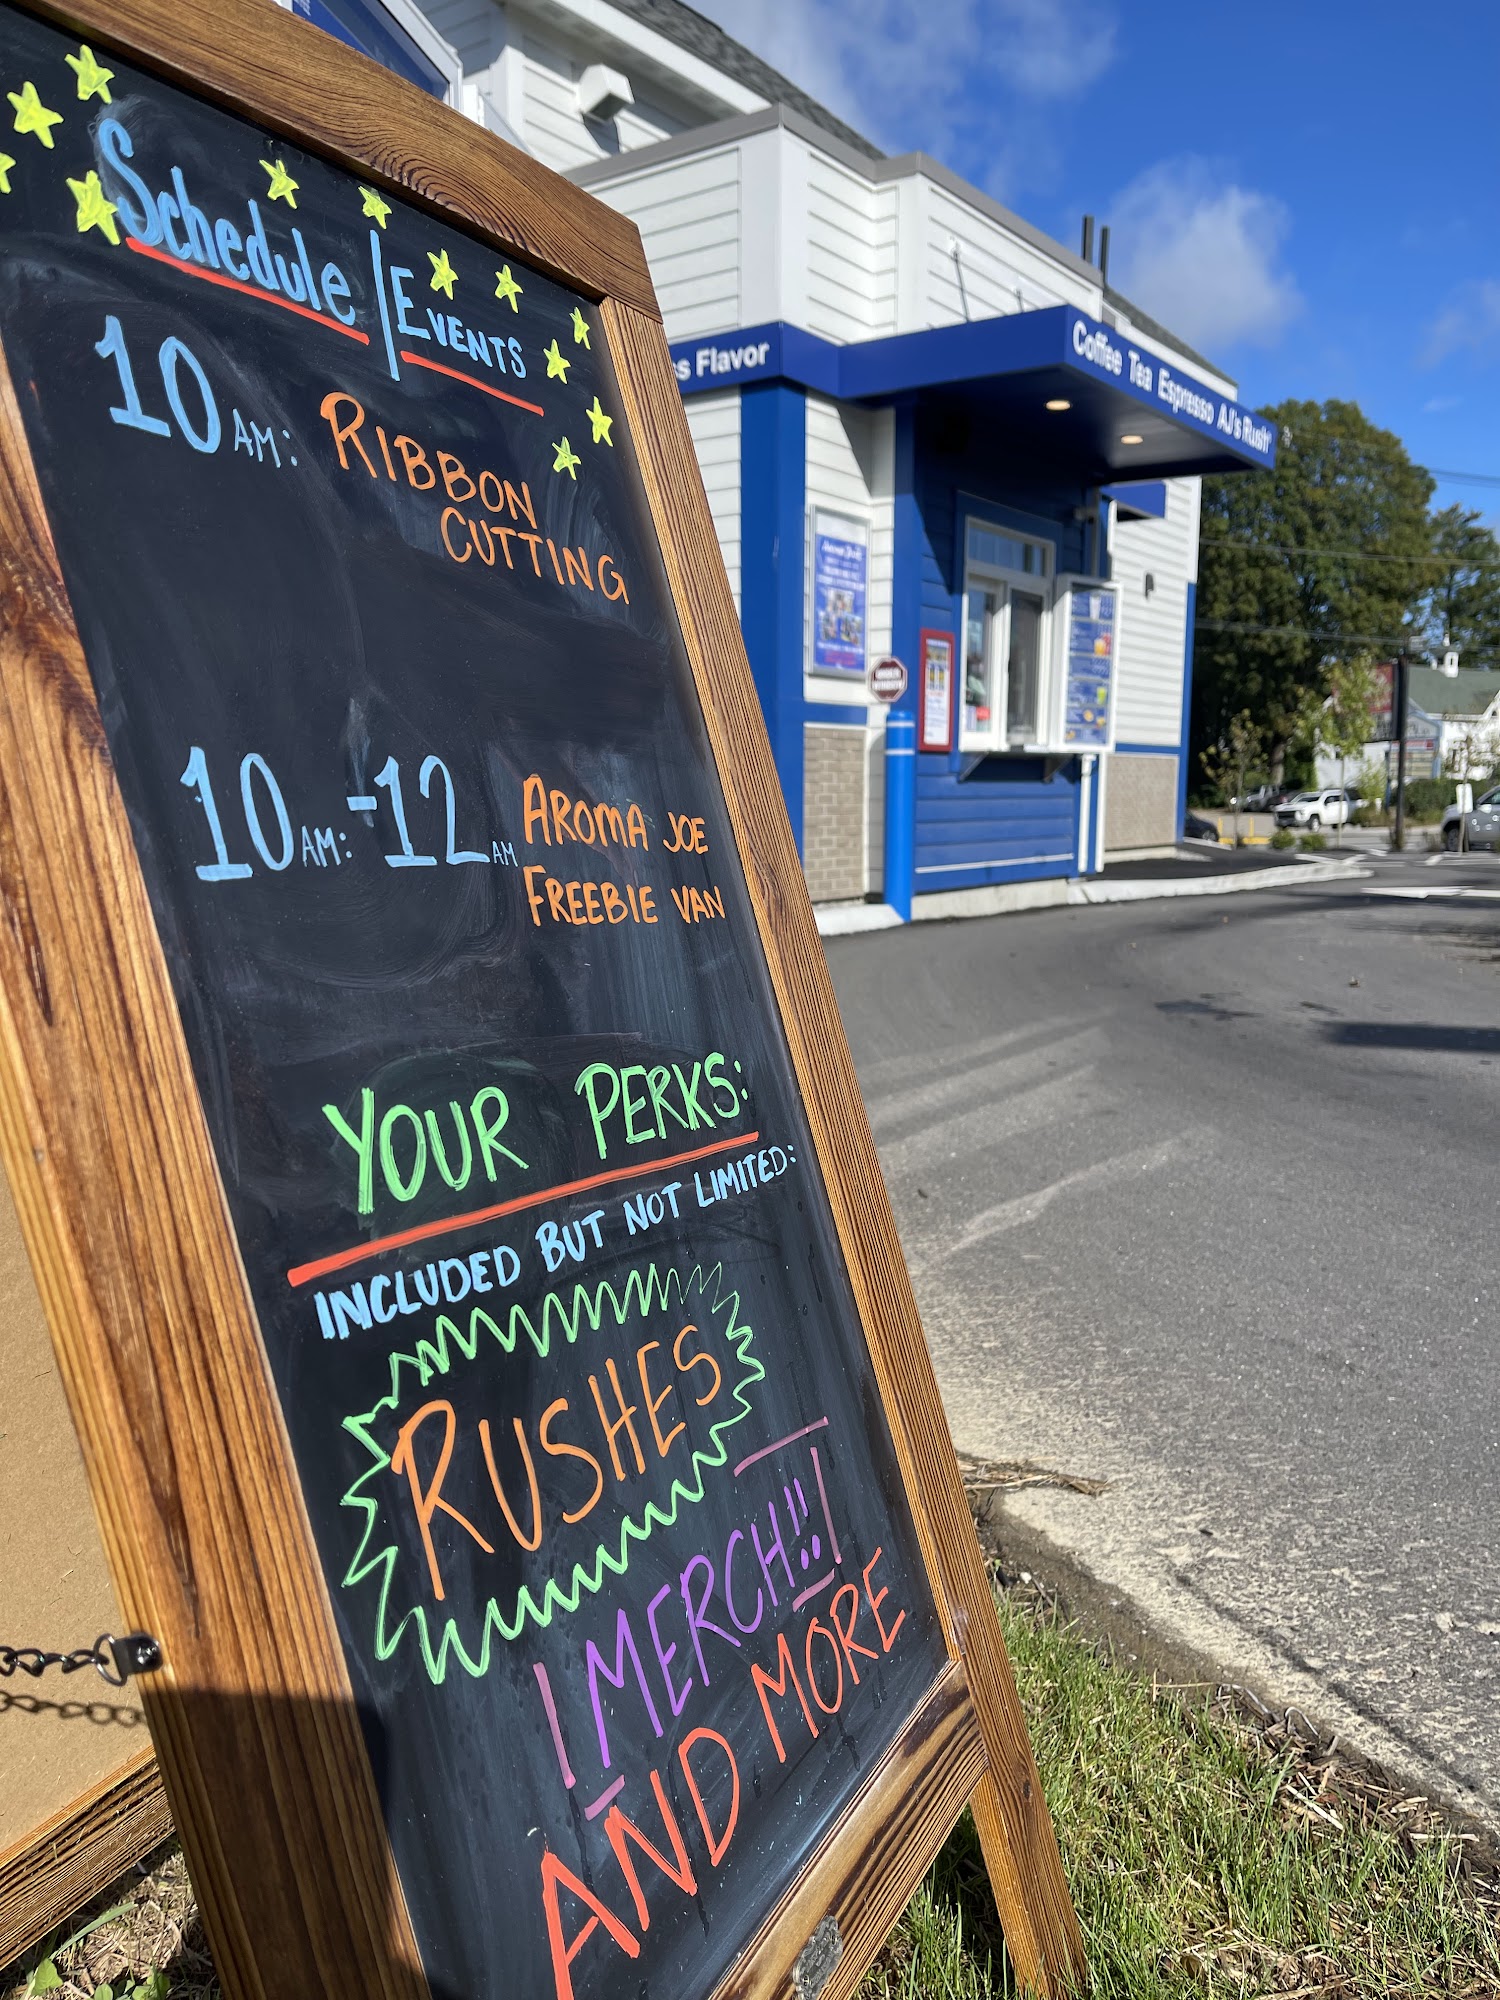 Schedule / Events
10 AM: RIBBON
CUTTING
10 AM: -12 AM AROMA JOE
FREEBIE VAN
YOUR PERKS:
INCLUDED BUT NOT LIMITED:
RUSHES
MERCH!!
AND MORE
Flavor
Coffee Tea Espresso AJ's Rush®